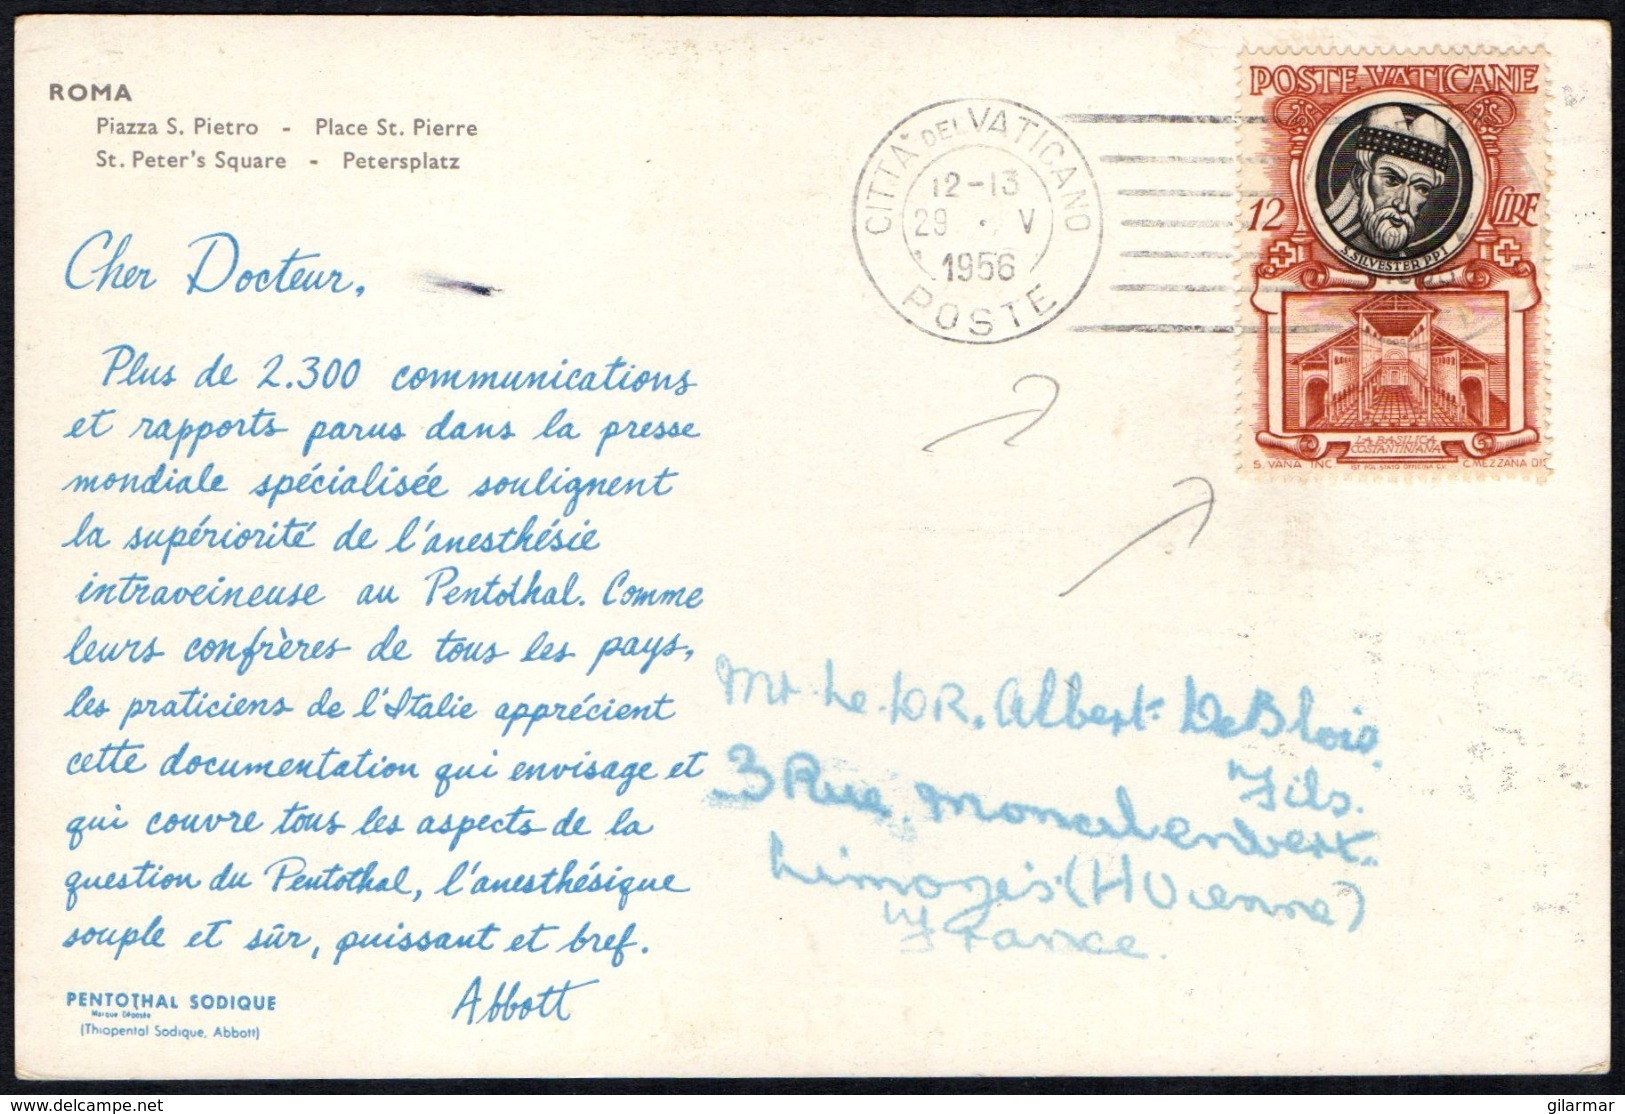 ROMA
Piazza S. Pietro - Place St. Pierre
St. Peter's Square - Petersplatz
Cher Docteur,
Plus de 2.300 communications
et rapports parus dans la presse
mondiale spécialisée soulignent
la supériorité de l'anesthésie
intraveineuse au Pentothal. Comme
leurs confrères de tous les pays,
les praticiens de l'Italie apprécient
cette documentation qui envisage et
qui couvre tous les aspects de la
question du Pentothal, l'anesthésique
souple et sûr, puissant et bref.
Abbott
PENTOTHAL SODIQUE
Marque Déposée
(Thiopental Sodique, Abbott)
CITTÀ DEL VATICANO
12-13
29 · V
1956
POSTE
POSTE VATICANE
12 LIRE
S. SILVESTER PP I
LA BASILICA
COSTANTINIANA
S. VANA INC. IST. POL. STATO OFFICINA C.V. C. MEZZANA DIS
Mr Le DR. Albert DeBlois
Fils.
3 Rue
Limoges (H Vienne)
France.
delcampe.net
gilarmar